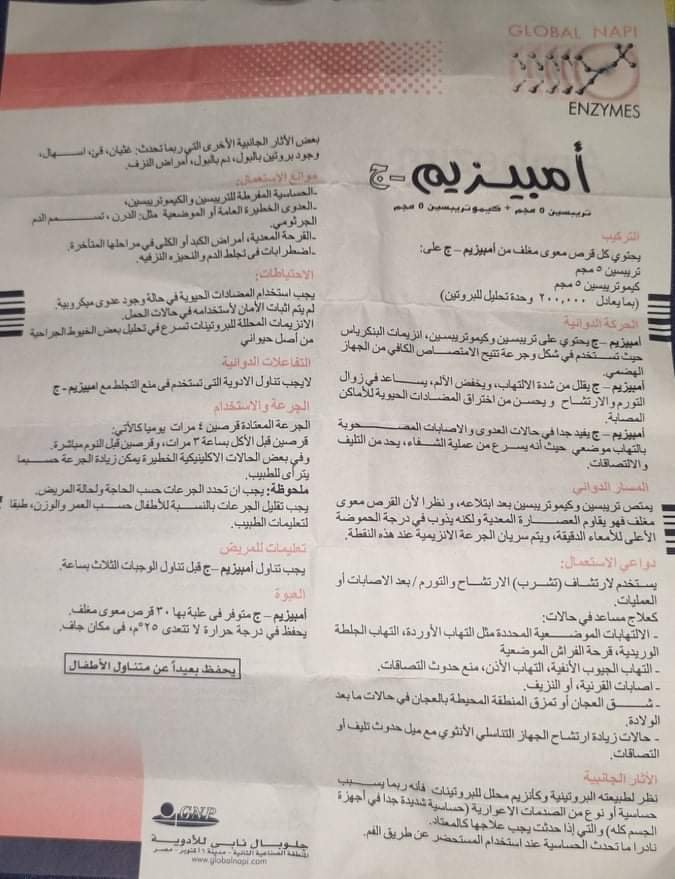 GLOBAL NAPI
ENZYMES
أمبيزيم - ج
تريبسين ٥ مجم + كيموتريبسين ٥ مجم
التركيب
يحتوي كل قرص معوى مغلف من أمبيزيم – ج على:
تريبسين ٥ مجم
كيموتريبسين ٥ مجم
(بما يعادل ٢٠٠,٠٠٠ وحدة تحليل للبروتين)
الحركة الدوائية
أمبيزيم – ج يحتوي على تريبسين وكيموتريبسين، انزيمات البنكرياس
حيث تستخدم في شكل وجرعة تتيح الامتصاص الكافي من الجهاز
الهضمي.
أمبيزيم – ج يقلل من شدة الالتهاب، ويخفض الألم، يساعد في زوال
التورم والارتشاح و يحسن من اختراق المضادات الحيوية للأماكن
المصابة.
أمبيزيم – ج يفيد جدا في حالات العدوى والاصابات المصحوبة
بالتهاب موضعي حيث أنه يسرع من عملية الشفاء، يحد من التليف
والالتصاقات.
المسار الدوائي
يمتص تريبسين وكيموتريبسين بعد ابتلاعه، و نظرا لأن القرص معوى
مغلف فهو يقاوم العصارة المعدية ولكنه يذوب في درجة الحموضة
الأعلى للأمعاء الدقيقة، ويتم سريان الجرعة الانزيمية عند هذه النقطة.
دواعي الاستعمال:
يستخدم لارتشاف (تشرب) الارتشاح والتورم / بعد الاصابات أو
العمليات.
كعلاج مساعد في حالات:
- الالتهابات الموضعية المحددة مثل التهاب الأوردة، التهاب الجلطة
الوريدية، قرحة الفراش الموضعية
- التهاب الجيوب الأنفية، التهاب الأذن، منع حدوث التصاقات.
- اصابات القرنية، أو النزيف.
- شق العجان أو تمزق المنطقة المحيطة بالعجان في حالات ما بعد
الولادة.
- حالات زيادة ارتشاح الجهاز التناسلي الأنثوي مع ميل حدوث تليف أو
التصاقات.
الأثار الجانبية
نظر لطبيعته البروتينية وكأنزيم محلل للبروتينات فأنه ربما يسبب
حساسية أو نوع من الصدمات الاعوارية (حساسية شديدة جدا في أجهزة
الجسم كله) والتي إذا حدثت يجب علاجها كالمعتاد.
نادرا ما تحدث الحساسية عند استخدام المستحضر عن طريق الفم.
بعض الأثار الجانبية الأخرى التي ربما تحدث: غثيان، قئ، اسهال،
وجود بروتين بالبول، دم بالبول، أمراض النزف.
موانع الاستعمال:
-الحساسية المفرطة للتريبسين والكيموتريبسين،
-العدوى الخطيرة العامة أو الموضعية مثل: الدرن ، تسمم الدم
الجرثومي.
-القرحة المعدية، أمراض الكبد أو الكلى في مراحلها المتأخرة.
-اضطرابات في تجلط الدم والنحيزه النزفيه.
الاحتياطات:
يجب استخدام المضادات الحيوية في حالة وجود عدوى ميكروبية.
لم يتم اثبات الأمان لأستخدامه في حالات الحمل.
الانزيمات المحللة للبروتينات تسرع في تحليل بعض الخيوط الجراحية
من أصل حيواني
التفاعلات الدوائية
لايجب تناول الادوية التى تستخدم فى منع التجلط مع امبيزيم - ج
الجرعة والاستخدام
الجرعة المعتادة قرصين ٤ مرات يوميا كالآتي:
قرصين قبل الأكل بساعة ٣ مرات، وقرصين قبل النوم مباشرة.
وفي بعض الحالات الاكلينيكية الخطيرة يمكن زيادة الجرعة حسبما
يتراى للطبيب.
ملحوظة: يجب ان تحدد الجرعات حسب الحاجة ولحالة المريض.
يجب تقليل الجرعات بالنسبة للأطفال حسب العمر والوزن، طبقا
لتعليمات الطبيب.
تعليمات للمريض
يجب تناول أمبيزيم –ج قبل تناول الوجبات الثلاث بساعة.
العبوة
أمبيزيم – ج متوفر فى علبة بها ٣٠ قرص معوى مغلف.
يحفظ في درجة حرارة لا تتعدى ٢٥°م، فى مكان جاف.
يحفظ بعيداً عن متناول الأطفال
GNP
جلوبال نابى للأدوية
المنطقة الصناعية الثانية - مدينة ٦ أكتوبر - مصر
www.globalnapi.com